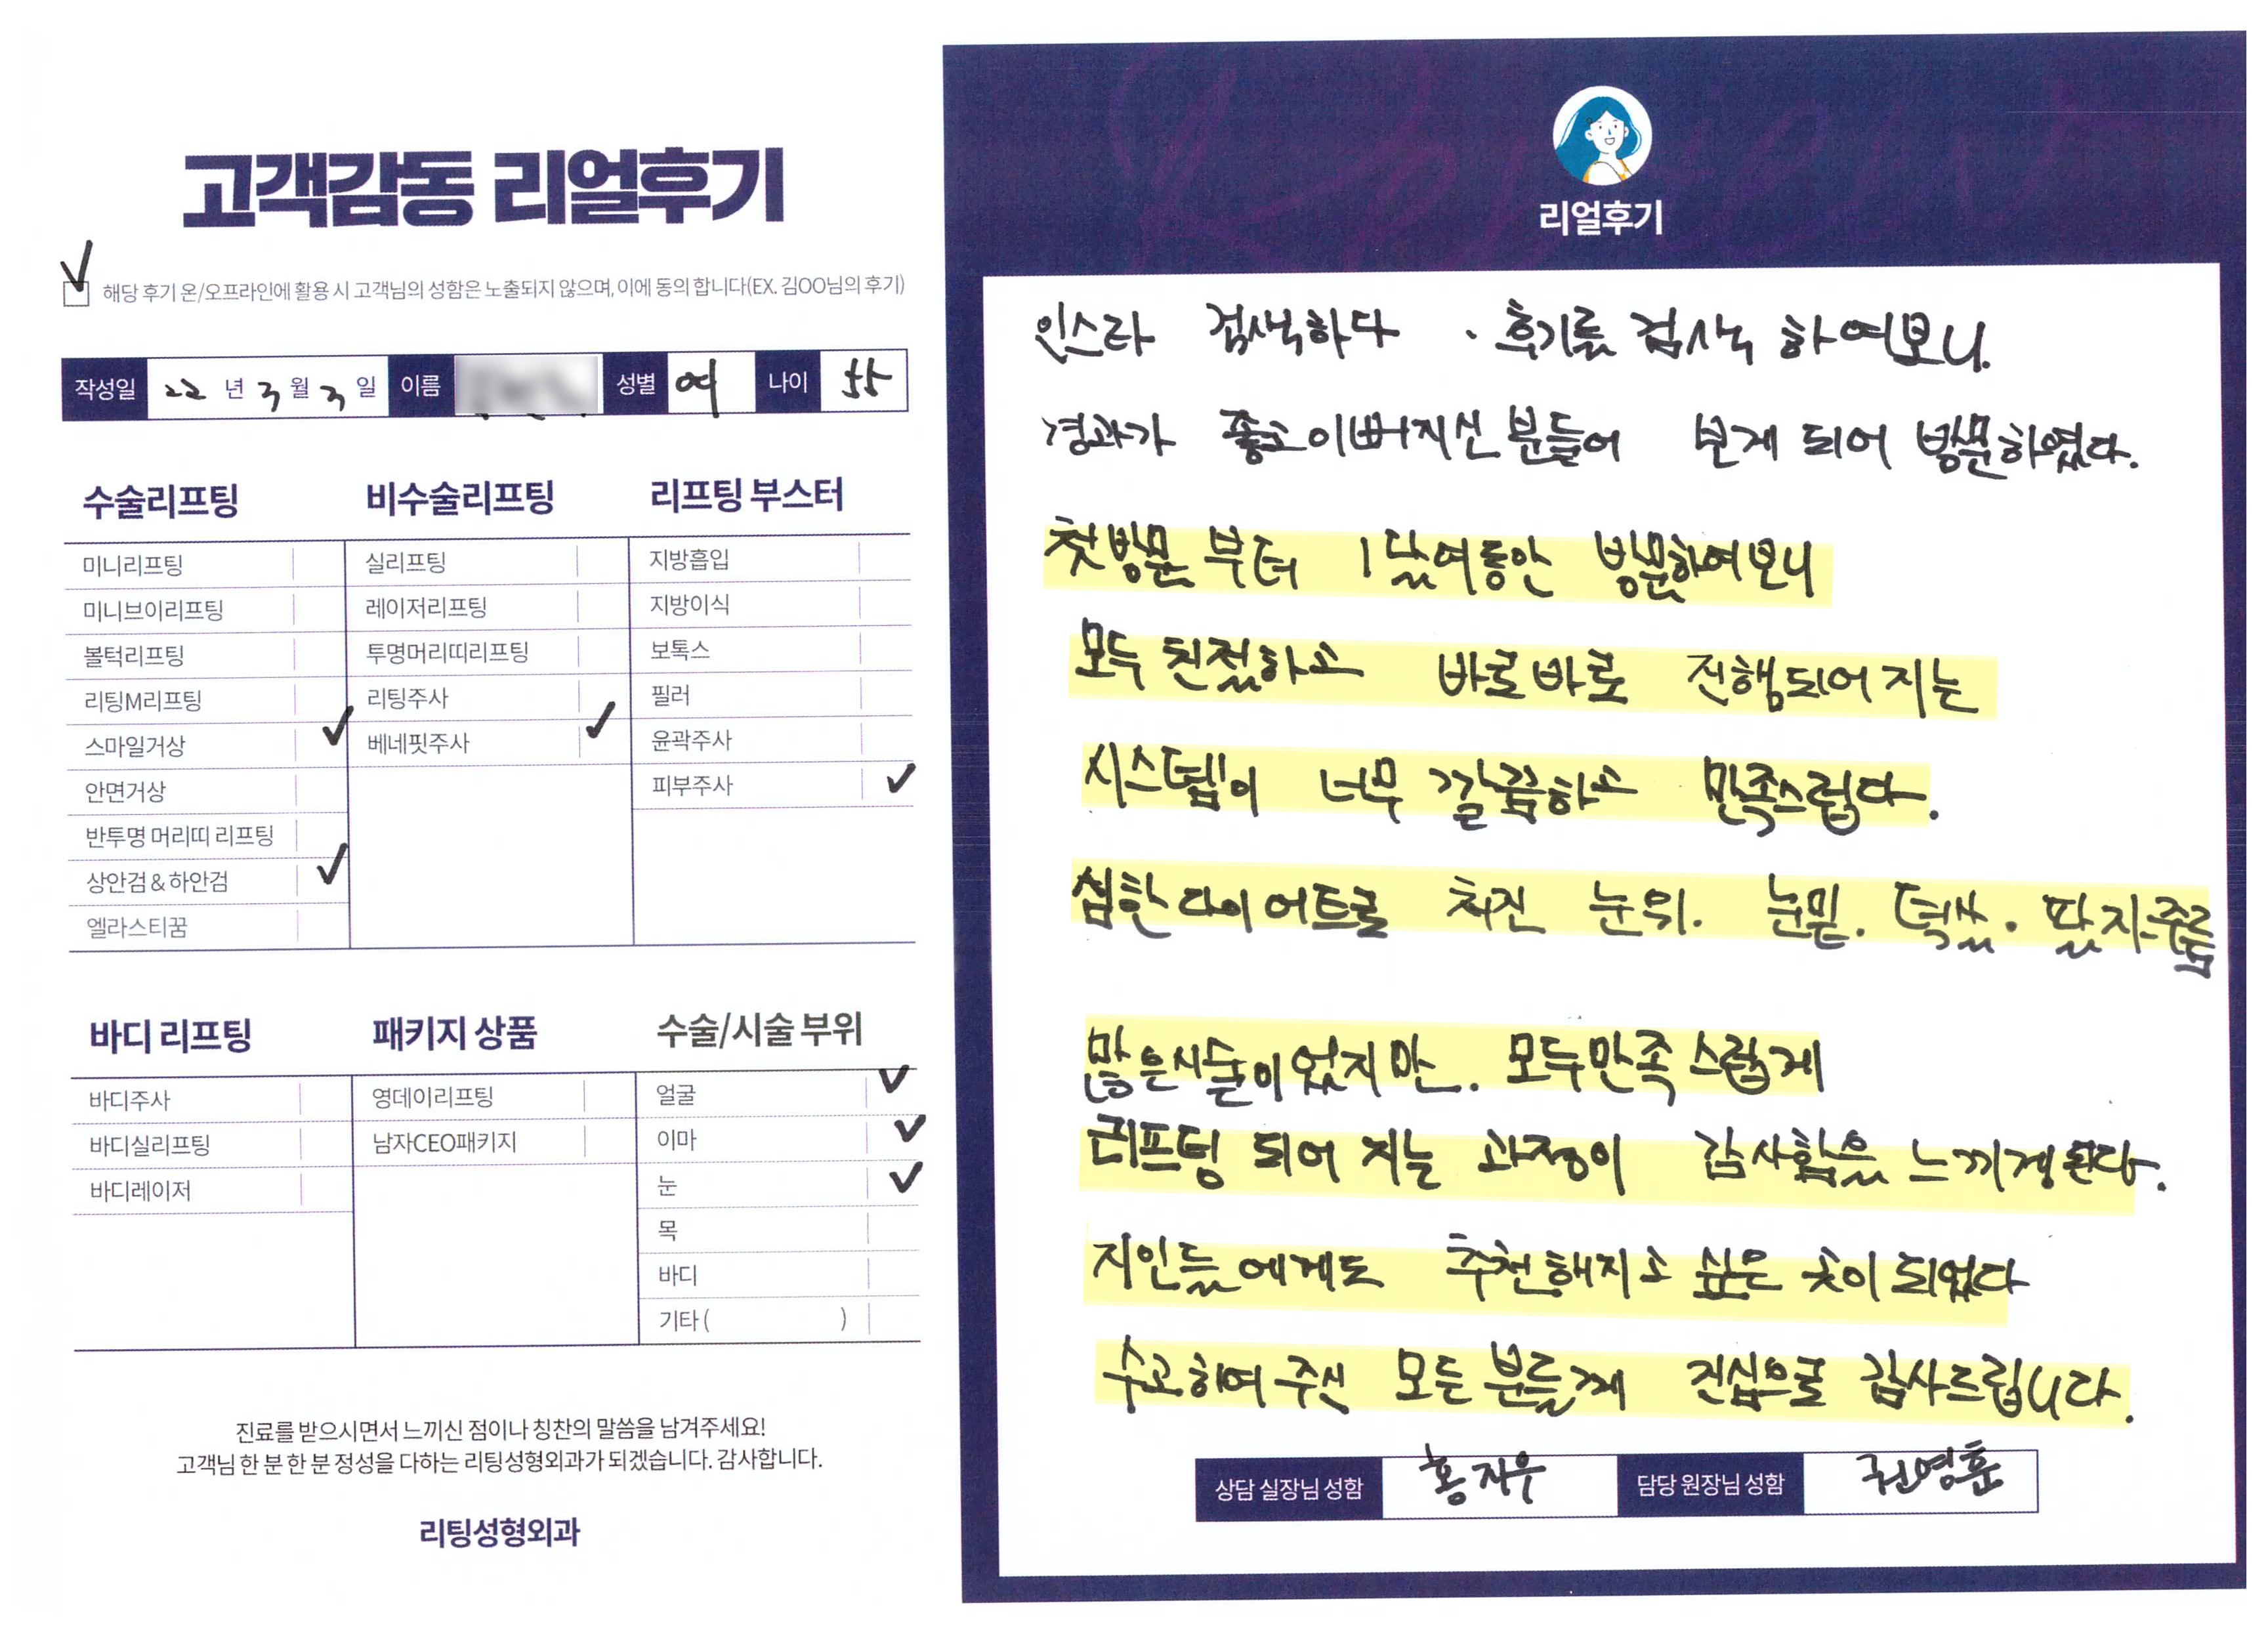 고객감동 리얼후기
해당 후기 온/오프라인에 활용 시 고객님의 성함은 노출되지 않으며, 이에 동의 합니다(EX. 김OO님의 후기)
작성일 22 년 3 월 3 일 이름 성별 여 나이 55
수술리프팅
미니리프팅
미니브이리프팅
볼턱리프팅
리팅M리프팅
스마일거상
안면거상
반투명 머리띠 리프팅
상안검 & 하안검
엘라스티꿈
비수술리프팅
실리프팅
레이저리프팅
투명머리띠리프팅
리팅주사
베네핏주사
리프팅 부스터
지방흡입
지방이식
보톡스
필러
윤곽주사
피부주사
바디 리프팅
바디주사
바디실리프팅
바디레이저
패키지 상품
영데이리프팅
남자CEO패키지
수술/시술 부위
얼굴
이마
눈
목
바디
기타 ( )
진료를 받으시면서 느끼신 점이나 칭찬의 말씀을 남겨주세요!
고객님 한 분 한 분 정성을 다하는 리팅성형외과가 되겠습니다. 감사합니다.
리팅성형외과
리얼후기
인스타 검색하다 . 후기를 검색 하여보니.
경과가 좋고 이뻐지신 분들이 보게 되어 방문하였다.
첫방문 부터 1달여동안 방문하여보니
모두 친절하고 바로바로 진행되어 지는
시스템이 너무 깔끔하고 만족스럽다.
심한 다이어트로 처진 눈위. 눈밑. 턱살. 팔자주름
많은시술이었지만. 모두만족 스럽게
리프팅 되어 지는 과정이 감사함을 느끼게된다.
지인들 에게도 추천해지고 싶은 곳이 되었다
수고하여 주신 모든 분들께 진심으로 감사드립니다.
상담 실장님 성함 홍지우 담당 원장님 성함 권영훈